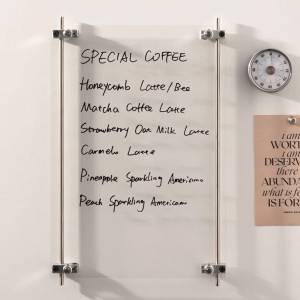 SPECIAL COFFEE
Honeycomb Latte/Bee
Matcha Coffee Latte
Strawberry Oat Milk Latte
Caramelo Latte
Pineapple Sparkling Americano
Peach Sparkling Americano
i am
WORT
i am
DESERV
there
ABUNDA
what is f
IS FOR